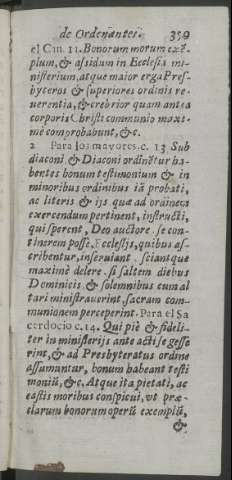 de Ordenantes. 359
el Cin. 11. Bonorum morum exẽ-
plum, & assidum in Ecclesia mi-
nisterium, atque maior erga Pres-
byteros & superiores ordinis re-
uerentia, & crebrior quam antea
corporis Christi communio maxi-
mè comprobabunt, &c.
2 Para los mayores. c. 13 Sub
diaconi & Diaconi ordinẽtur ha-
bentes bonum testimonium & in
minoribus ordinibus iã probati,
ac literis & ijs quæ ad ordinem
exercendum pertinent, instructi,
qui sperent, Deo auctore se con-
tinerem posse, Ecclesijs, quibus as-
cribentur, inseruiant. sciant quæ
maximè delere. si saltem diebus
Dominicis & solemnibus cum al
tari ministrauerint, sacram com-
munionem perceperint. Para el Sa
cerdocio c. 14. Qui piè & fideli-
ter in ministerijs ante acti se gesse
rint, & ad Presbyteratus ordine
assumuntur, bonum habeant testi
moniũ, &c. Atque ita pietati, ac
castis moribus conspicui, vt præ-
clarum bonorum operũ exemplũ,
&